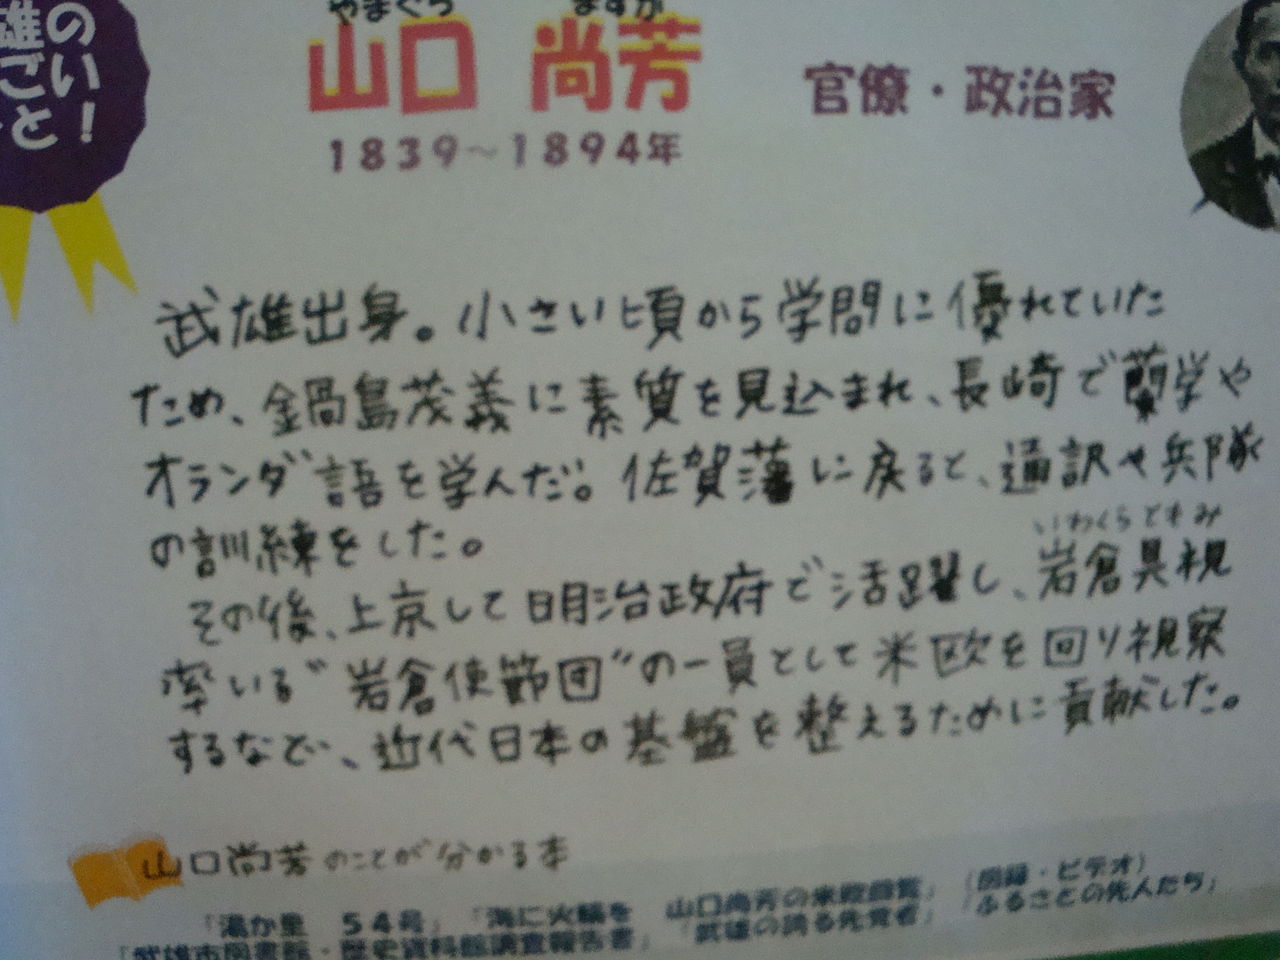 雄の
ごい
こと！
やまぐち ますか
山口 尚芳
1839～1894年
官僚・政治家
武雄出身。小さい頃から学問に優れていた
ため、鍋島茂義に素質を見込まれ、長崎で蘭学や
オランダ語を学んだ。佐賀藩に戻ると、通訳や兵隊
の訓練をした。
いわくらともみ
その後、上京して明治政府で活躍し、岩倉具視
率いる“岩倉使節団”の一員として米欧を回り視察
するなど、近代日本の基盤を整えるために貢献した。
山口尚芳のことが分かる本
「湯か里 54号」「海に火輪を 山口尚芳の米欧回覧」（図録・ビデオ）
「武雄市図書館・歴史資料館調査報告書」「武雄の誇る先覚者」「ふるさとの先人たち」